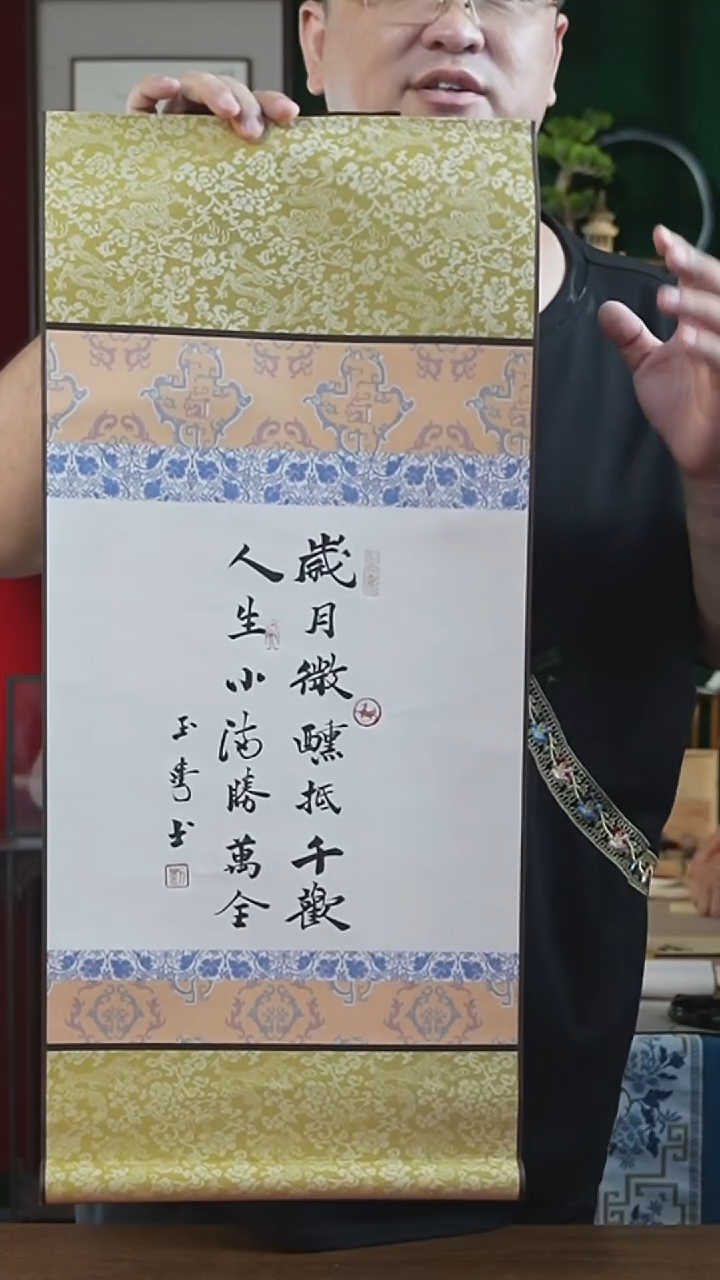 歲月微醺抵千歡
人生小滿勝萬全
玉 书